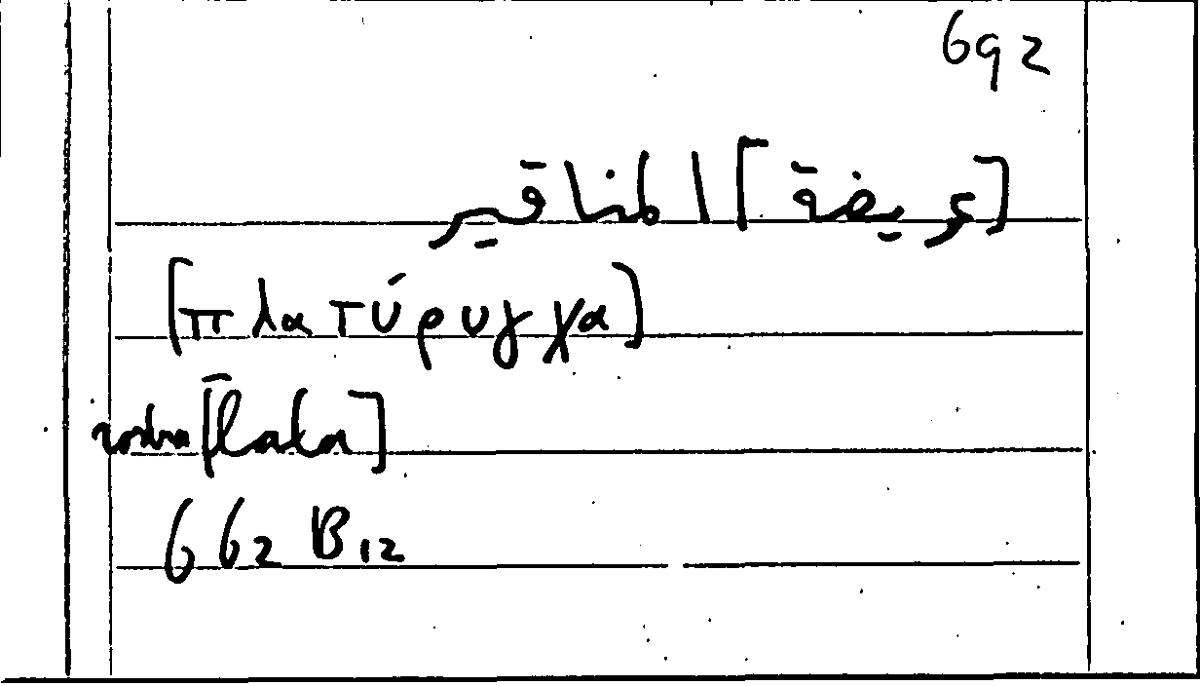 692
[عريضة] المناقير
[πλατύρυγχα]
rostra [lata]
662 B12